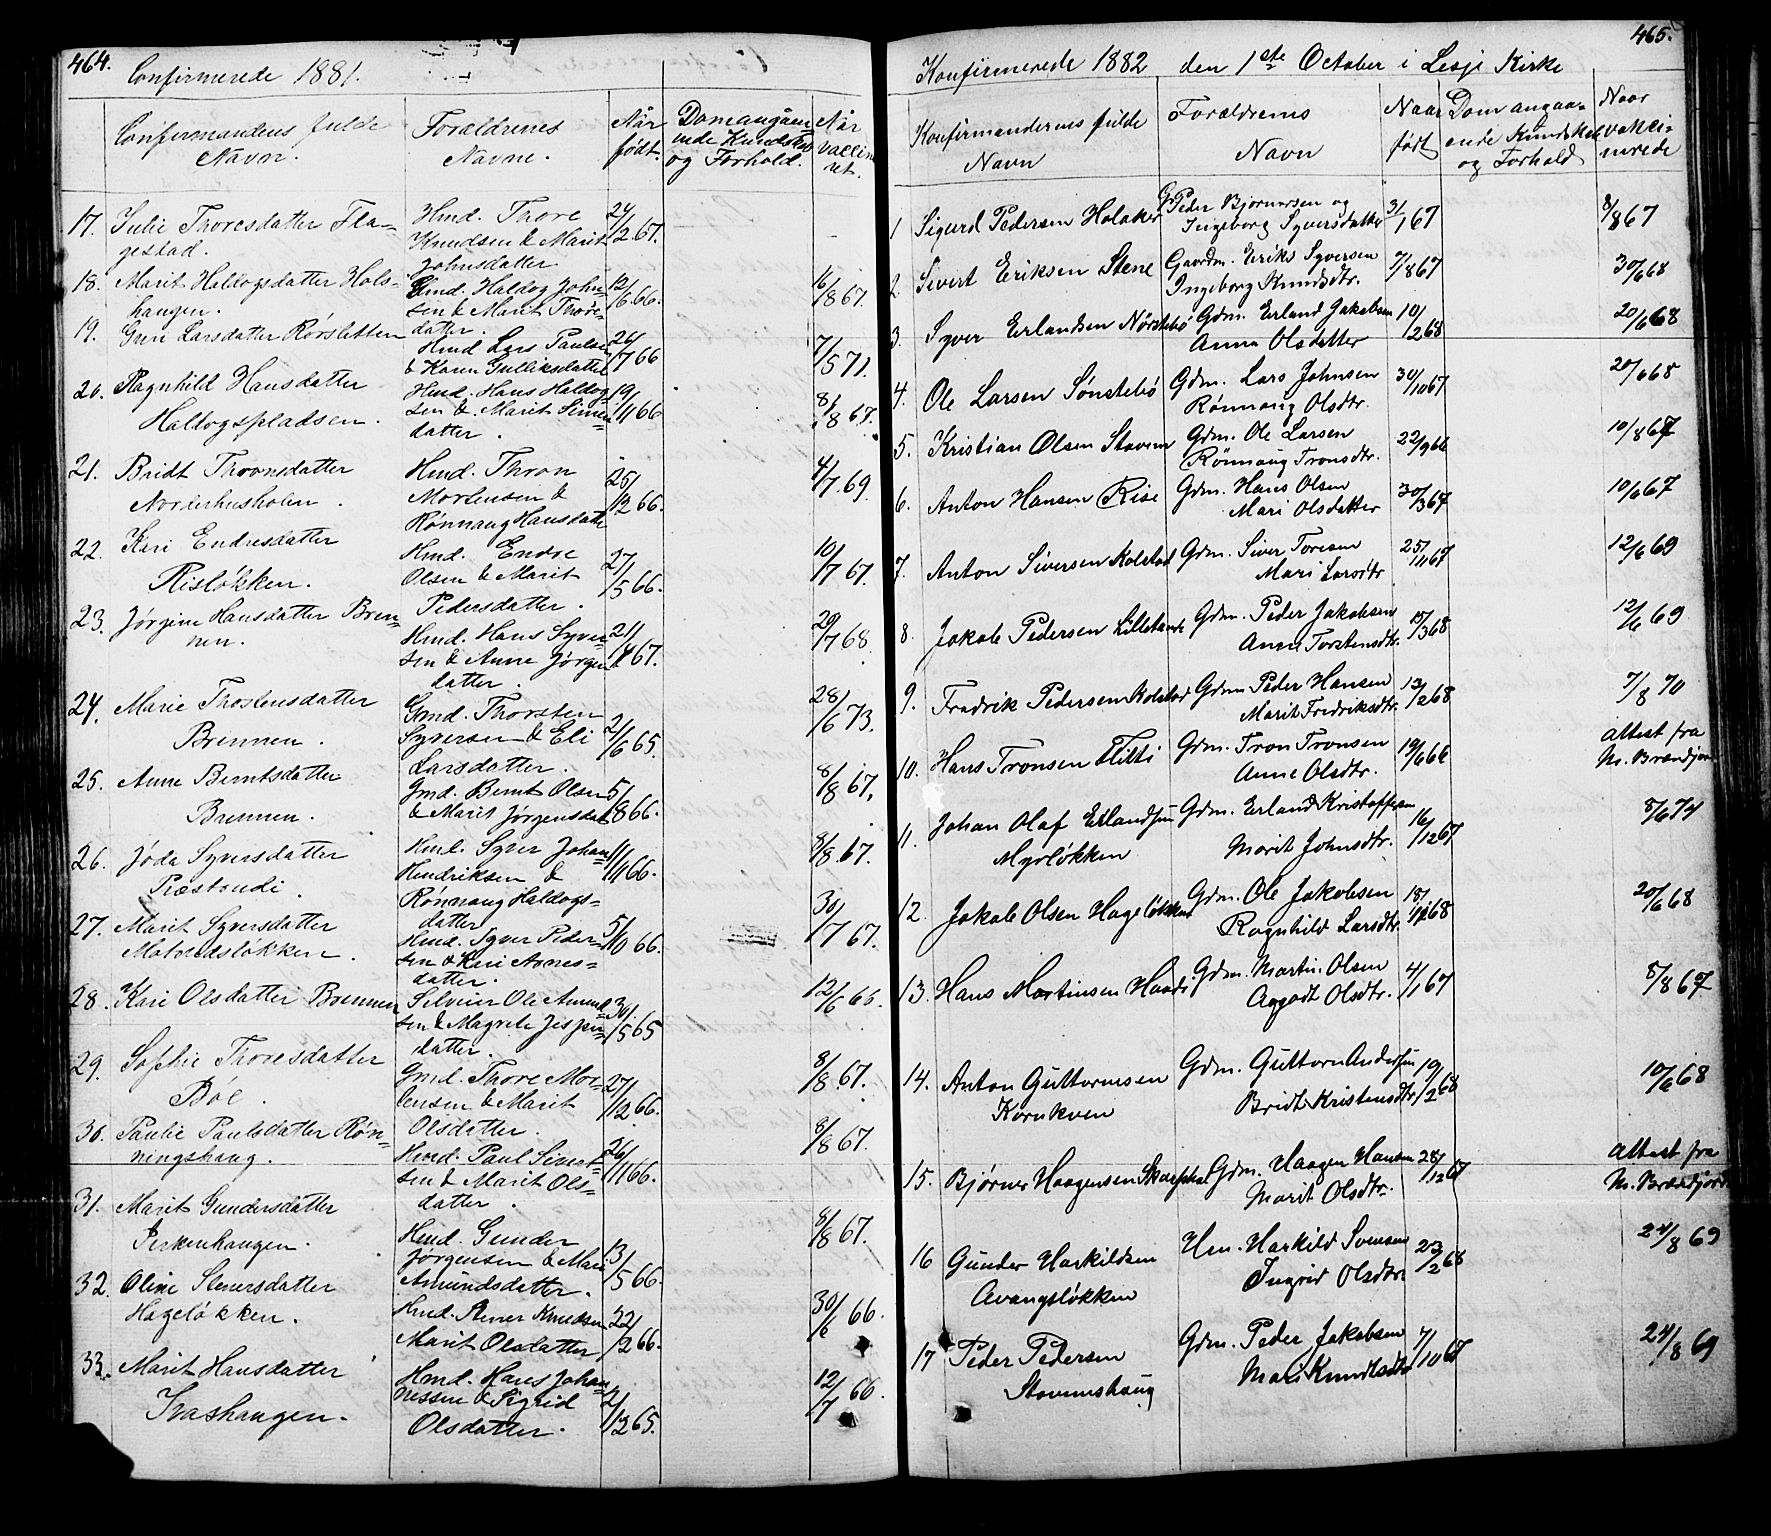 464.
Confirmerede 1881.
Confirmandens fulde Navn.
Forældrenes Navne.
Når født.
Domangåen= ende Kundskab og Forhold.
Når vaccin et.
17. Julie Thoresdatter Fla= gestad.
Hmd. Thore Knudsen & Marit Johnsdatter
24/12.67.
18. Marit Haldogsdatter Hols= haugen.
Hmd. Haldog John= sen & Marit Thore= datter.
12/6 66.
16/8 67.
19. Guri Larsdatter Rørsletten
Hmd Lars Paulsen & Karen Gulliksdatter
24/7 66
7/5 71.
20. Ragnhild Hansdatter Haldogspladsen.
Hmd. Hans Haldog= sen & Marit Simen= datter.
19/11 66
8/8 67.
21. Bridt Thronsdatter Norderhusholen.
Hmd. Thron Mortensen & Rønnaug Hansdatte
25/12 66.
4/7.69.
22. Kari Endresdatter Risløkken.
Hmd. Endre Olsen & Marit Pedersdatter.
27/5 66.
10/7 67.
23. Jørgine Hansdatter Bren= nen.
Hmd. Hans Syver= sen & Anne Jørgen datter.
21/1 67.
29/7 68.
24. Marie Thostensdatter Brennen.
Gmd. Thorsten Syversen & Eli Larsdatter.
2/6 65.
28/6 73.
25. Anne Berntsdatter Brennen.
Gmd. Bernt Olsen & Marit Jørgensdat
5/8 66.
8/8 67.
26. Jøda Syversdatter Præstrudi.
Hmd. Syver Johan Hendriksen & Rønnaug Haldogs= datter
11/11 66.
8/8.67.
27. Marit Syversdatter
Hmd. Syver Peder= sen & Kari Arnes= datter.
5/10 66.
30/7 67.
28. Kari Olsdatter Brennen
Selveier Ole Amund= sen & Magrete Jesper= datter.
30/5 65
12/6 66.
29. Sophie Thoresdatter Bøe.
Gmd. Thore Mor= tensen & Marit Olsdatter.
27/12 66.
8/8.67.
30. Paulie Paulsdatter Røn= ningshaug.
Hmd. Paul Siver= sen & Marit Ols= datter.
26/11 66.
8/8 67.
31. Marit Gundersdatter Pirkenhaugen.
Hmd. Gunder Jørgensen & Mari Amundsdatter.
13/5 66.
8/8 67.
32. Oline Stenersdatter Hageløkken.
Hmd. Stener Knudsen Marit Olsdatter
22/12 66.
30/6 66.
33. Marit Hansdatter
Hmd. Hans Johan= nessen & Sigrid Olsdatter.
2/12 65.
12/7 66.
465.
Konfirmerede 1882 den 1ste October i Lesje Kirke
Konfirmandernes fulde Navn
Forældrens Navn
Naar født
Dom angaa= ende Kundskab og Forhold
Naar vakci= nerede
1 Sigurd Pedersen Holaker
G Peder Bjørnersen og Ingeborg Syversdatter
3/1 67
8/8 67
2 Sivert Eriksen Stene
Gaardm. Eriks Syversen Ingeborg Knudsdtr.
7/8 67
30/6 68
3. Syver Erlandsen Nørstebø
Gdm. Erland Jakobsen Anna Olsdatter
10/2 68
20/6 68
4. Ole Larsen Sønstebø
Gdm. Lars Johnsen Rønnaug Olsdtr.
30/10 67
20/6 68
5. Kristian Olsen Stavem
Gdm. Ole Larsen Rønnaug Tronsdtr.
22/9 66
10/8 67
6. Anton Hansen Rise
Gdm. Hans Olsen Mari Olsdatter
30/3 67
10/6 67
7. Anton Siversen Kolstad
Gdm. Siver Toresen Mari Larsdtr
25/11 67
12/6 69
8. Jakob Pedersen Lilletande
Gdm. Peder Jakobsen Anne Torstensdtr.
15/3 68
12/6 69
9. Fredrik Pedersen Kolstad
Gdm Peder Hansen Marit Fredriksdtr.
13/2 68
7/8 70
10. Hans Tronsen Flitti
Gdm. Tron Tronsen Anne Olsdtr.
19/6 66
attest fra M. Brændjord
11. Johan Olaf Erlandsen Myrløkken
Gdm. Erland Kristoffersen Marit Johnsdtr.
16/12 67
8/6 74
12. Jakob Olsen Hageløkken
Gdm. Ole Jakobsen Ragnhild Larsdtr.
18/12 68
20/6 68
13. Hans Mortinsen Haadi
Gdm. Martin Olsen Aagodt Olsdtr.
4/1 67
8/8 67
14. Anton Guttormsen Kornkven
Gdm. Guttorm Andersen Bridt Kristensdtr.
19/2 68
10/6 68
15. Bjørner Haagensen Skarphol
Gdm. Haagen Hansen Marit Olsdtr.
28/12 67
Attest fra M. Brændjord
16 Gunder Harkildsen Avangsløkken
Hm. Harkild Svensen Ingrid Olsdtr
23/2 68
24/8 69
17 Peder Pedersen Stavemshaug
Gdm. Peder Jakobsen Mari Knudtsdtr
7/10 67
24/8 69